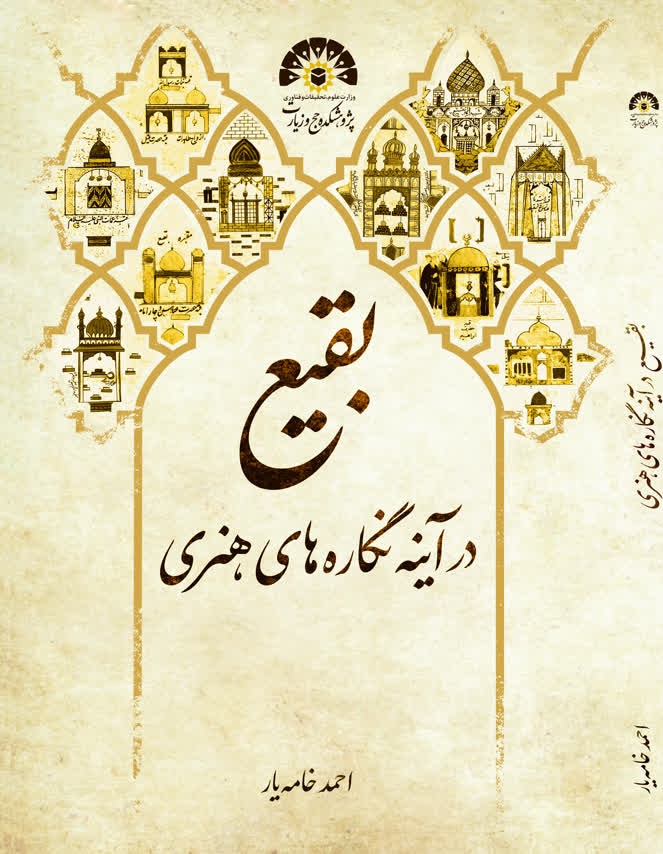 وزارت علوم، تحقیقات و فناوری
پژوهشکده حج و زیارت
مقبره بقیع
بقیع
در آینه نگاره‌های هنری
احمد خامه‌یار
پژوهشکده حج و زیارت
بقیع در آینه نگاره‌های هنری
احمد خامه‌یار